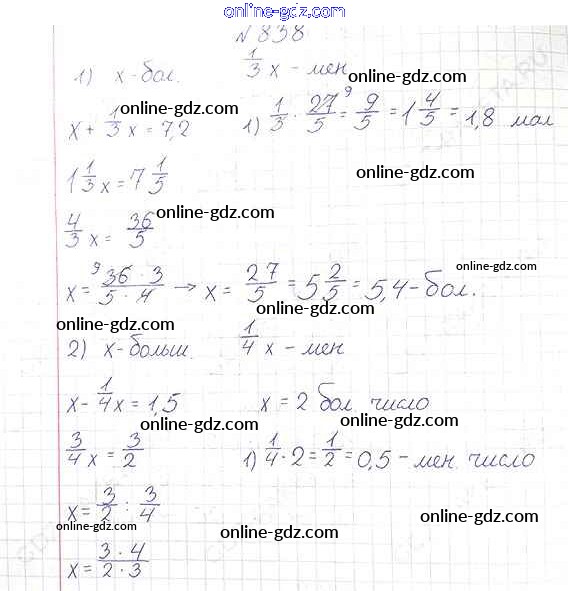 online-gdz.com
N 838
1) x - бол. 1/3 x - мен
online-gdz.com
online-gdz.com
x + 1/3 x = 7,2 1) 1/3 · 27/5 = 9/5 = 1 4/5 = 1,8 мал
online-gdz.com
1 1/3 x = 7 1/5
online-gdz.com
4/3 x = 36/5
online-gdz.com
x = 36 · 3 / 5 · 4 → x = 27/5 = 5 2/5 = 5,4 - бол.
online-gdz.com online-gdz.com
2) x - больш. 1/4 x - мен
online-gdz.com
x - 1/4 x = 1,5 x = 2 бол число
online-gdz.com online-gdz.com
3/4 x = 3/2 1) 1/4 · 2 = 1/2 = 0,5 - мен. число
online-gdz.com
x = 3/2 : 3/4
online-gdz.com online-gdz.com online-gdz.com
x = 3 · 4 / 2 · 3